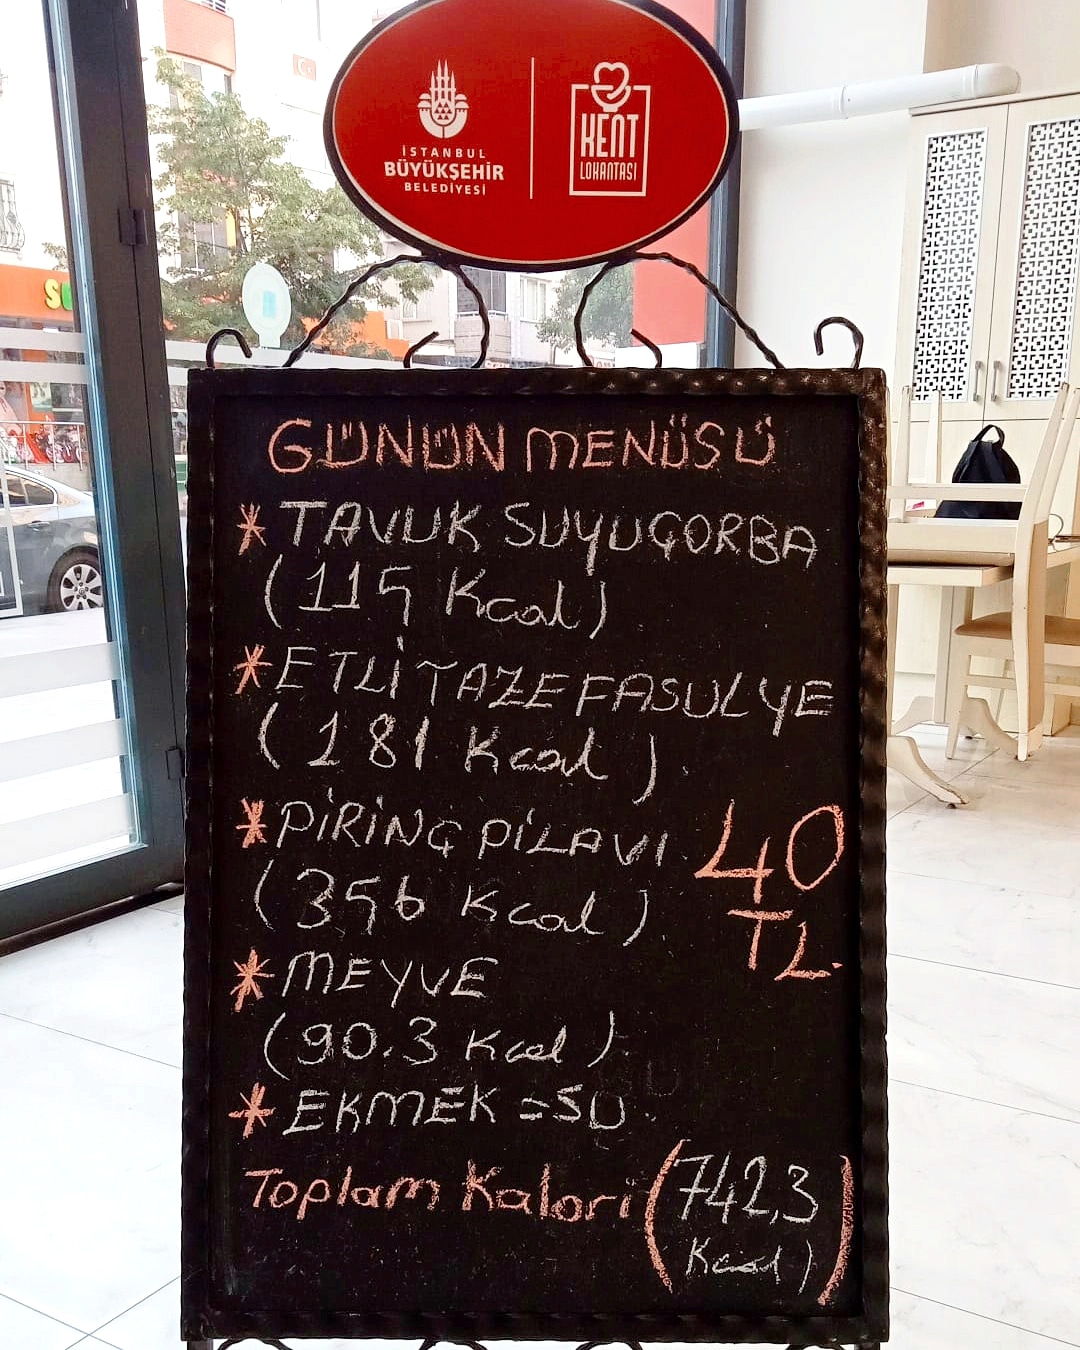 İSTANBUL
BÜYÜKŞEHİR
BELEDİYESİ
KENT
LOKANTASI
GÜNÜN MENÜSÜ
* TAVUK SUYU ÇORBA
(115 Kcal)
* ETLİ TAZE FASULYE
(181 Kcal)
* PİRİNÇ PİLAVI
(356 Kcal)
40
TL.
* MEYVE
(90.3 Kcal)
* EKMEK = SU
Toplam Kalori (742,3
Kcal)